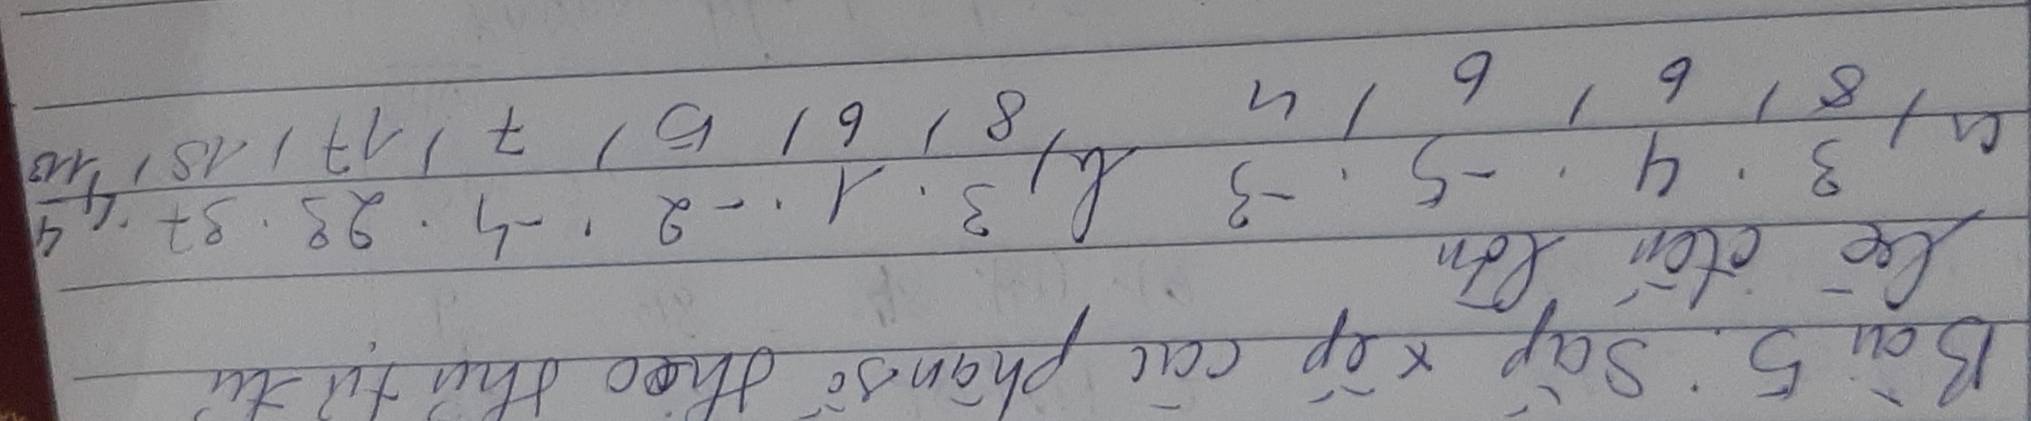 Bài 5: Sắp xếp các phân số theo thứ tự từ
bé đến lớn
a, 3/8 ; 4/6 ; -5/6 ; -3/4 b, 3/8 ; 1/6 ; -2/5 ; -4/7 ; 23/17 ; 37/18 ;